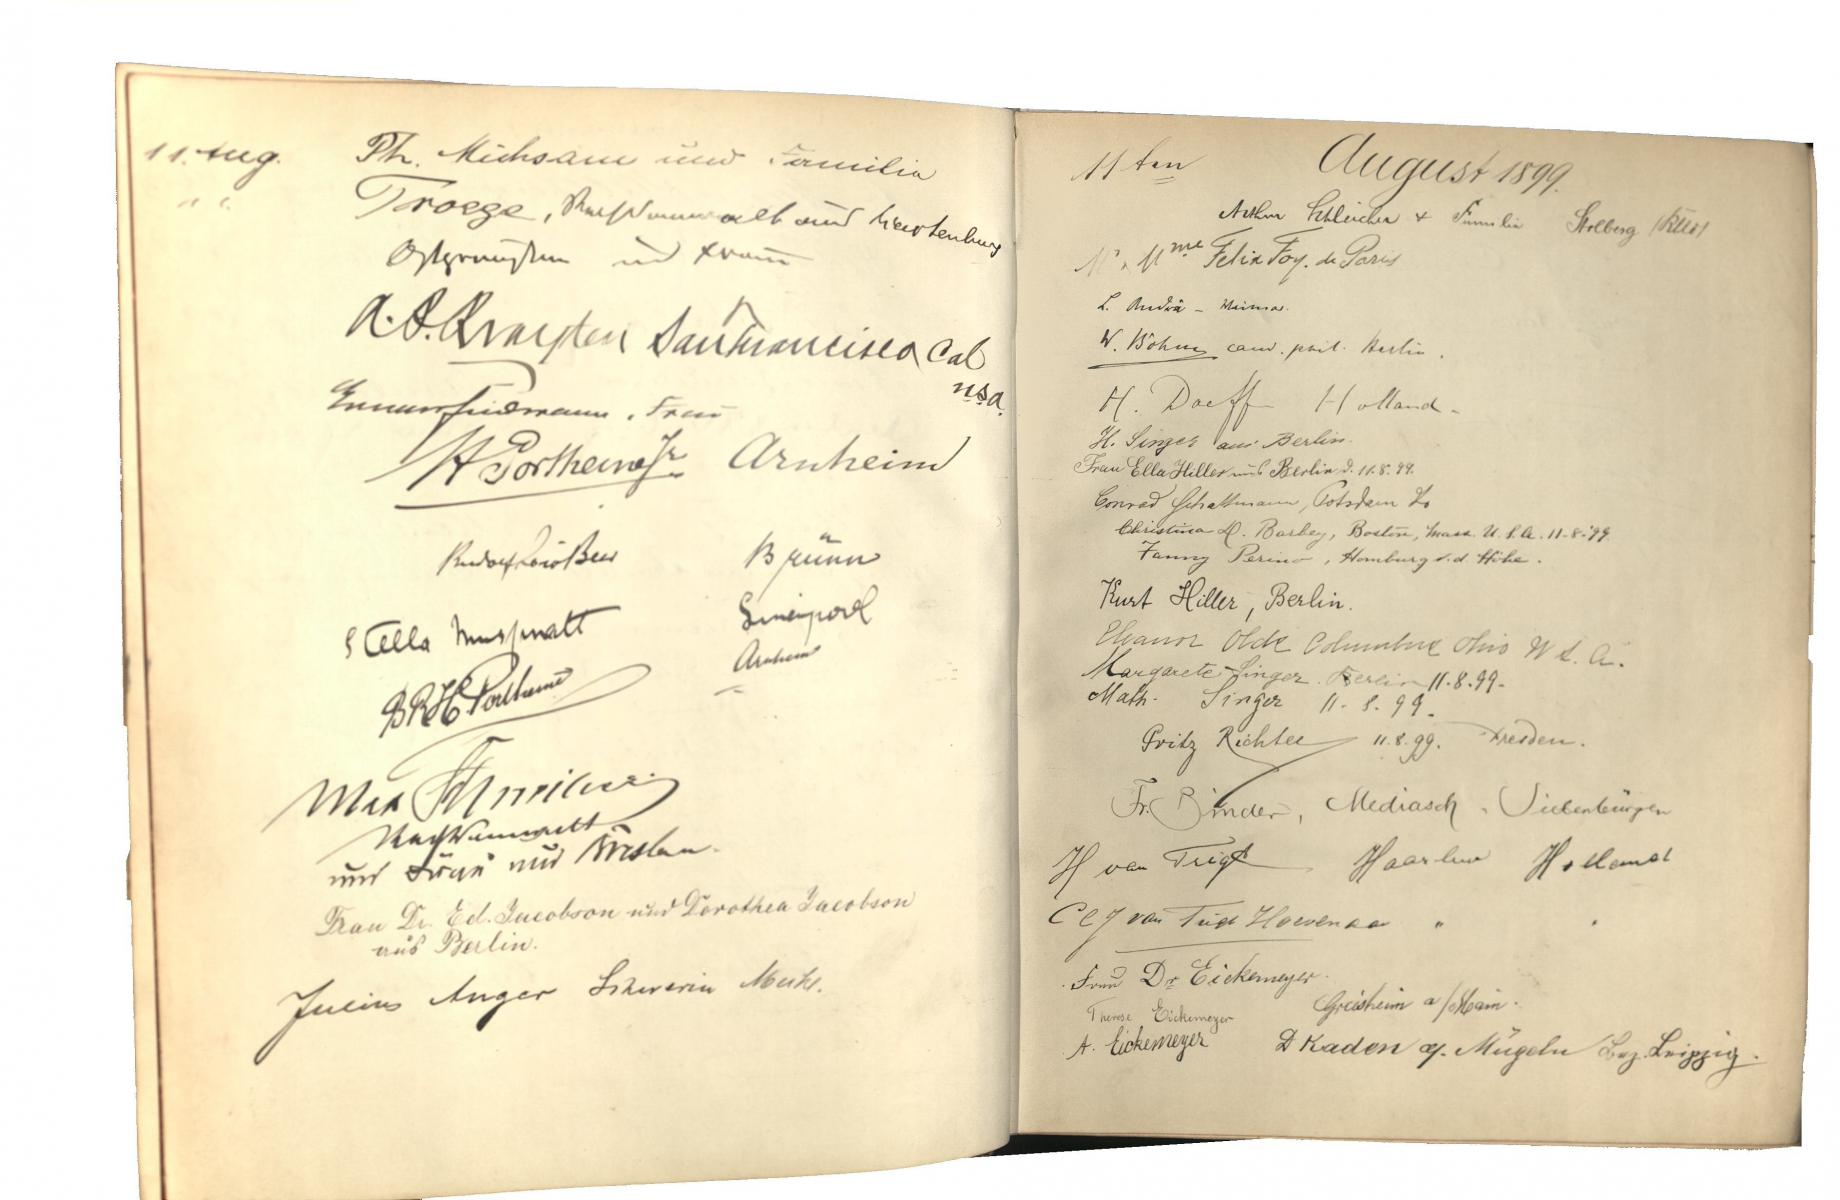 11. Aug.
Ph. Mühsam und Familie
" "
Troege, Rechtsanwalt aus Marienburg
Ostpreußen und Frau
San Francisco Cal
U.S.A.
Frau
H Portheine Jr. Arnheim
Rudolf Brünn
Stella Muspratt Liverpool
B R H C Portheine Arnheim
Max
Rechtsanwalt
und Frau aus Breslau.
Frau Dr. Ed. Jacobson und Dorothea Jacobson
aus Berlin.
Julius Anger Schwerin Meckl.
11ten August 1899.
Arthur Schleicher & Familie Stolberg
Mr & Mme Felix Foy. de Paris
L. André - Weimar.
W. Böhm cand. phil. Berlin.
H. Doeff Holland -
H. Singer aus Berlin.
Frau Ella Hiller aus Berlin d. 11.8.99.
Conrad Schattmann, Potsdam
Christina H. Barbey, Boston, Mass. U.S.A. 11-8-'99
Fanny Perino, Homburg v.d. Höhe.
Kurt Hiller, Berlin.
Eleanor Olds Columbus Ohio U S. A.
Margarete Singer. Berlin 11.8.99.
Math. Singer 11.8.99.
Fritz Richter 11.8.99. Dresden.
Fr. Binder, Mediasch, Siebenbürgen
H van Trigt Haarlem Holland
C C J van Hoevenaar " "
Frau Dr Eickemeyer.
Therese Eickemeyer Griesheim a/Main.
A. Eickemeyer D Kaden Mügeln Bez. Leipzig.